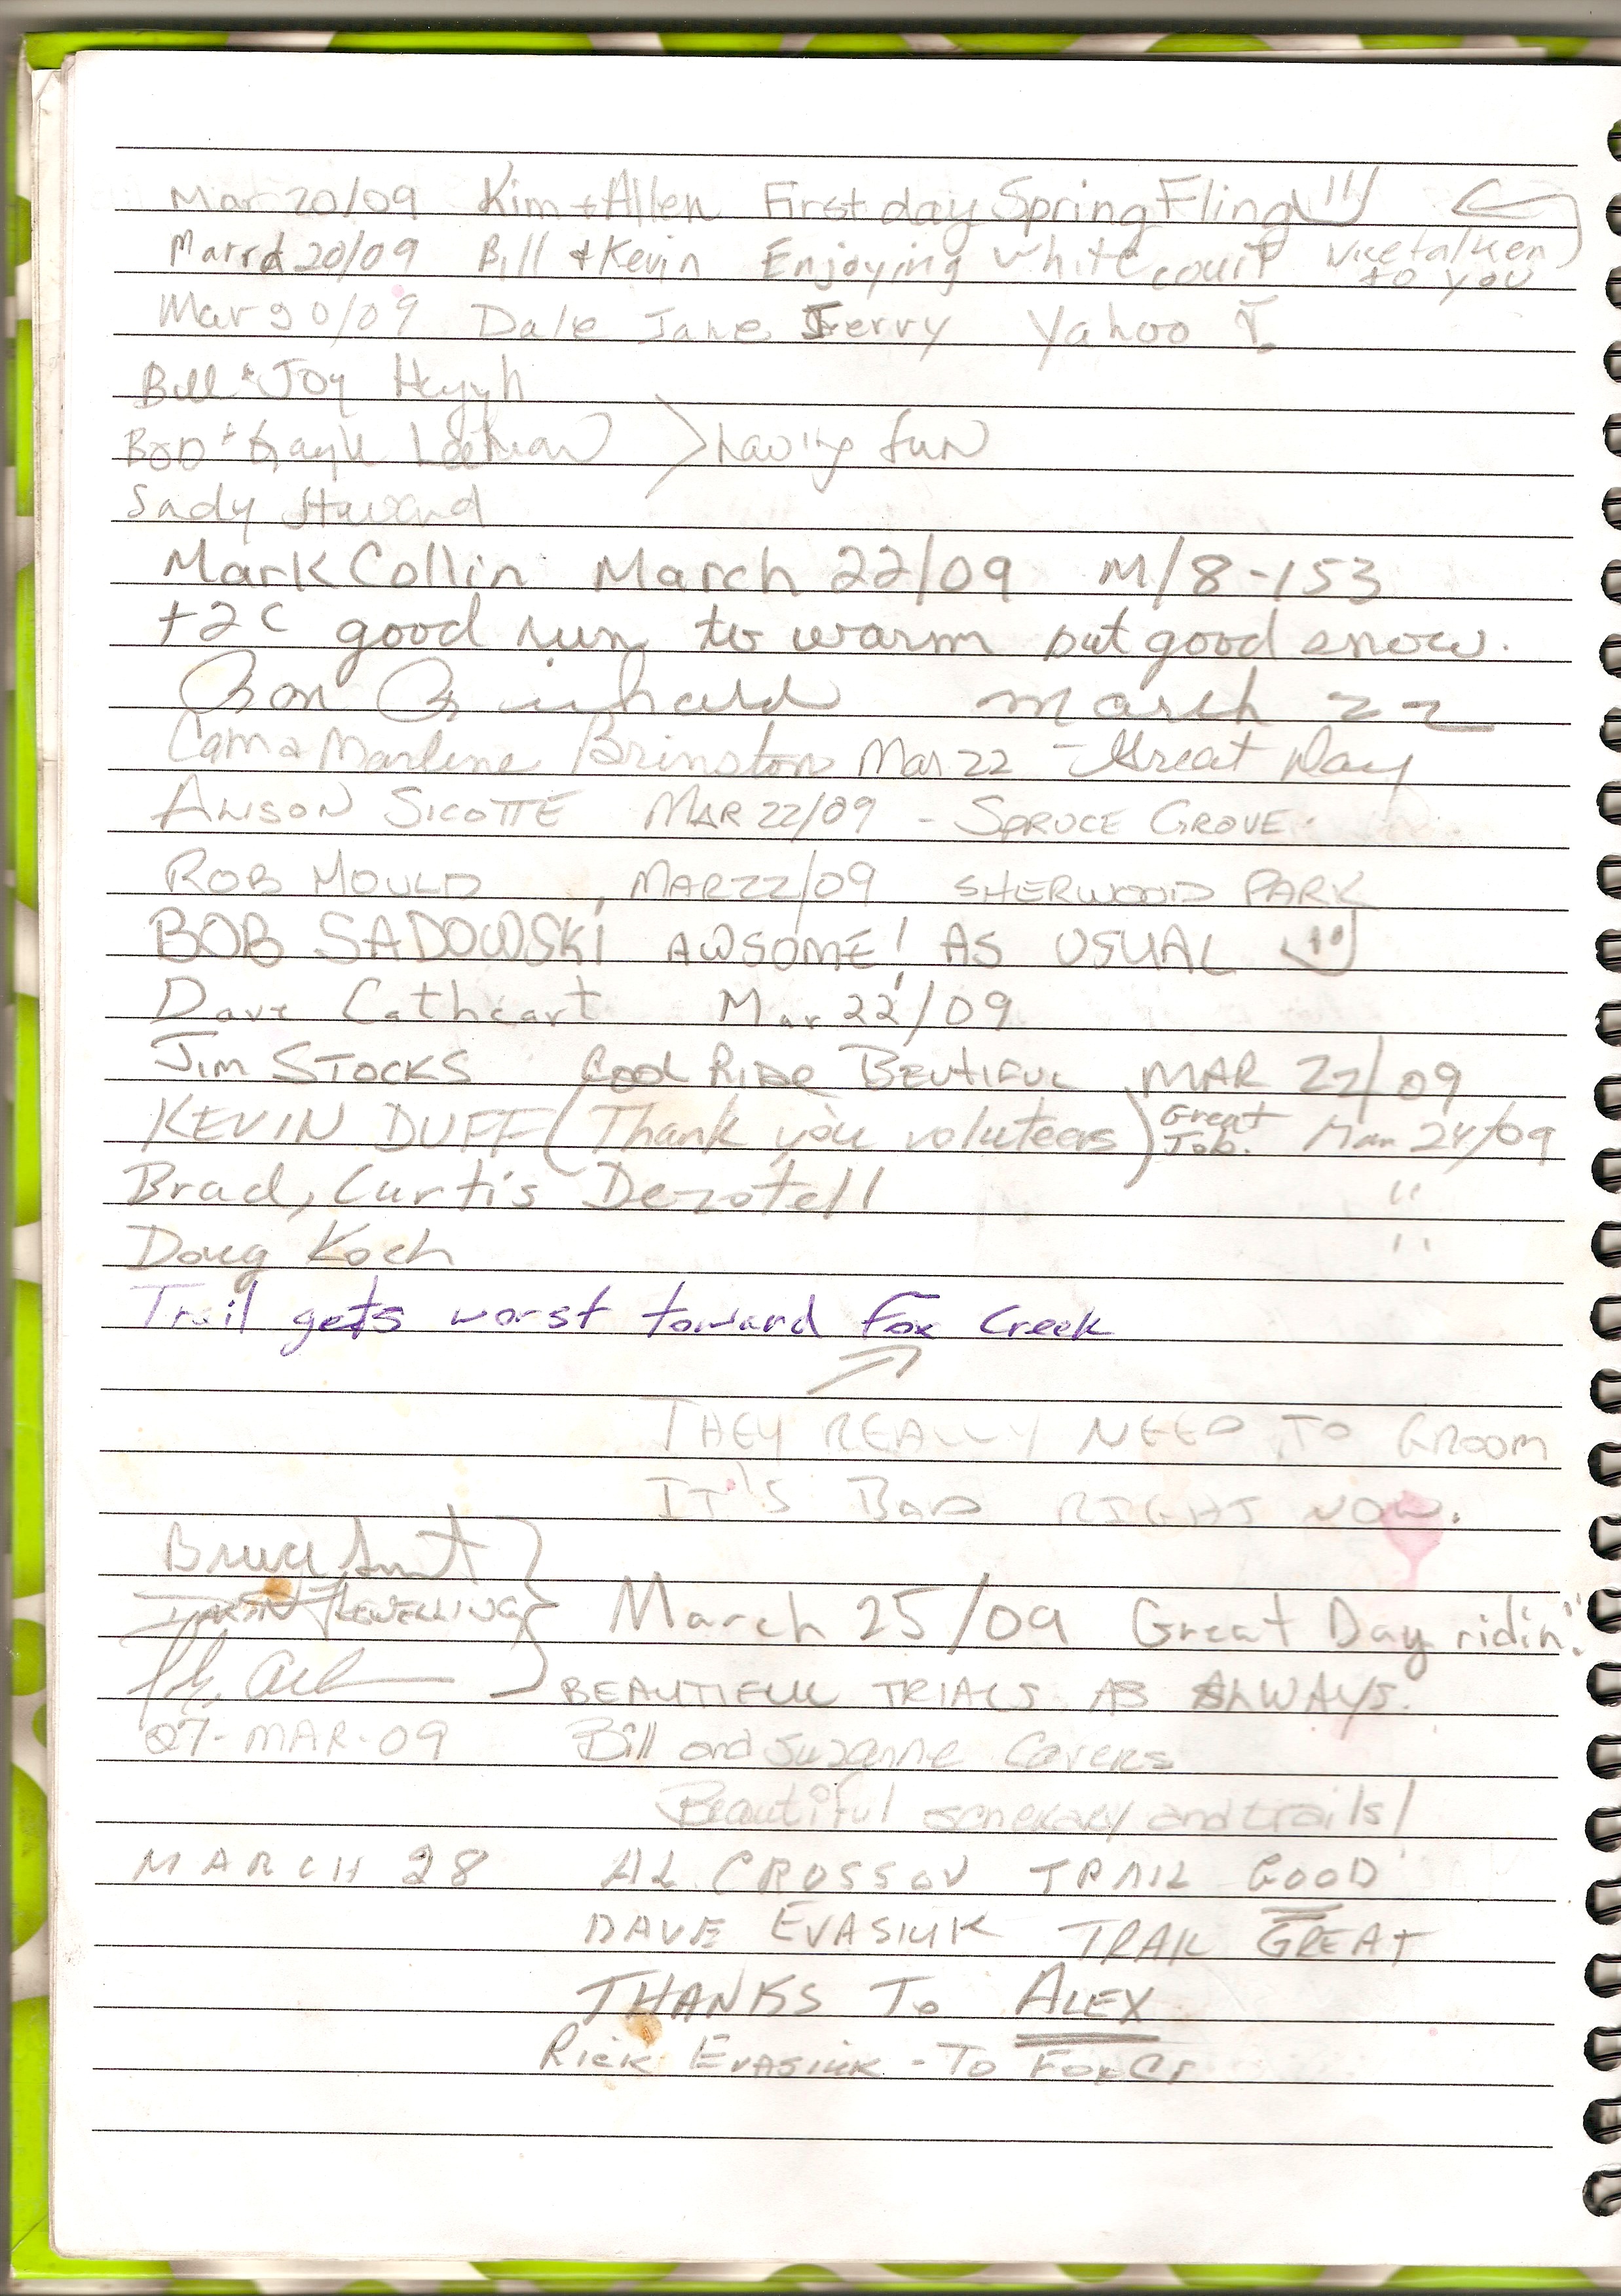 Mar 20/09 Kim + Allen First day Spring Fling
March 20/09 Bill + Kevin Enjoying Whitecourt Nice talken to you
Mar 20/09 Dale Jane Jerry Yahoo !
Bill & Joy
Bob & Gayle having fun
Sady
Mark Collin March 22/09 M/8-153
+2C good run to warm but good snow.
Ron March 22
Cam & Marlene Brinston Mar 22 - Great Day
ALISON SICOTTE MAR 22/09 - SPRUCE GROVE.
ROB MOULD MAR 22/09 SHERWOOD PARK
BOB SADOWSKI AWSOME! AS USUAL
Dave Cathcart Mar 22/09
JIM STOCKS GOOD RIDE BEUTIFUL MAR 22/09
KEVIN DUFF (Thank you voluteers) Great Job. Mar 24/09
Brad, Curtis Dezotell "
Doug Koch "
Trail gets worst toward Fox Creek
THEY REALLY NEED TO GROOM
IT'S BAD RIGHT NOW.
Bruce
March 25/09 Great Day ridin.
BEAUTIFUL TRIALS AS ALWAYS.
27-MAR-09 Bill and Suzanne Covers
Beautiful scnerary and trails!
MARCH 28 AL CROSSON TRAIL GOOD
DAVE EVASIUK TRAIL GREAT
THANKS TO ALEX
RICK EVASIUK - TO FOX CR